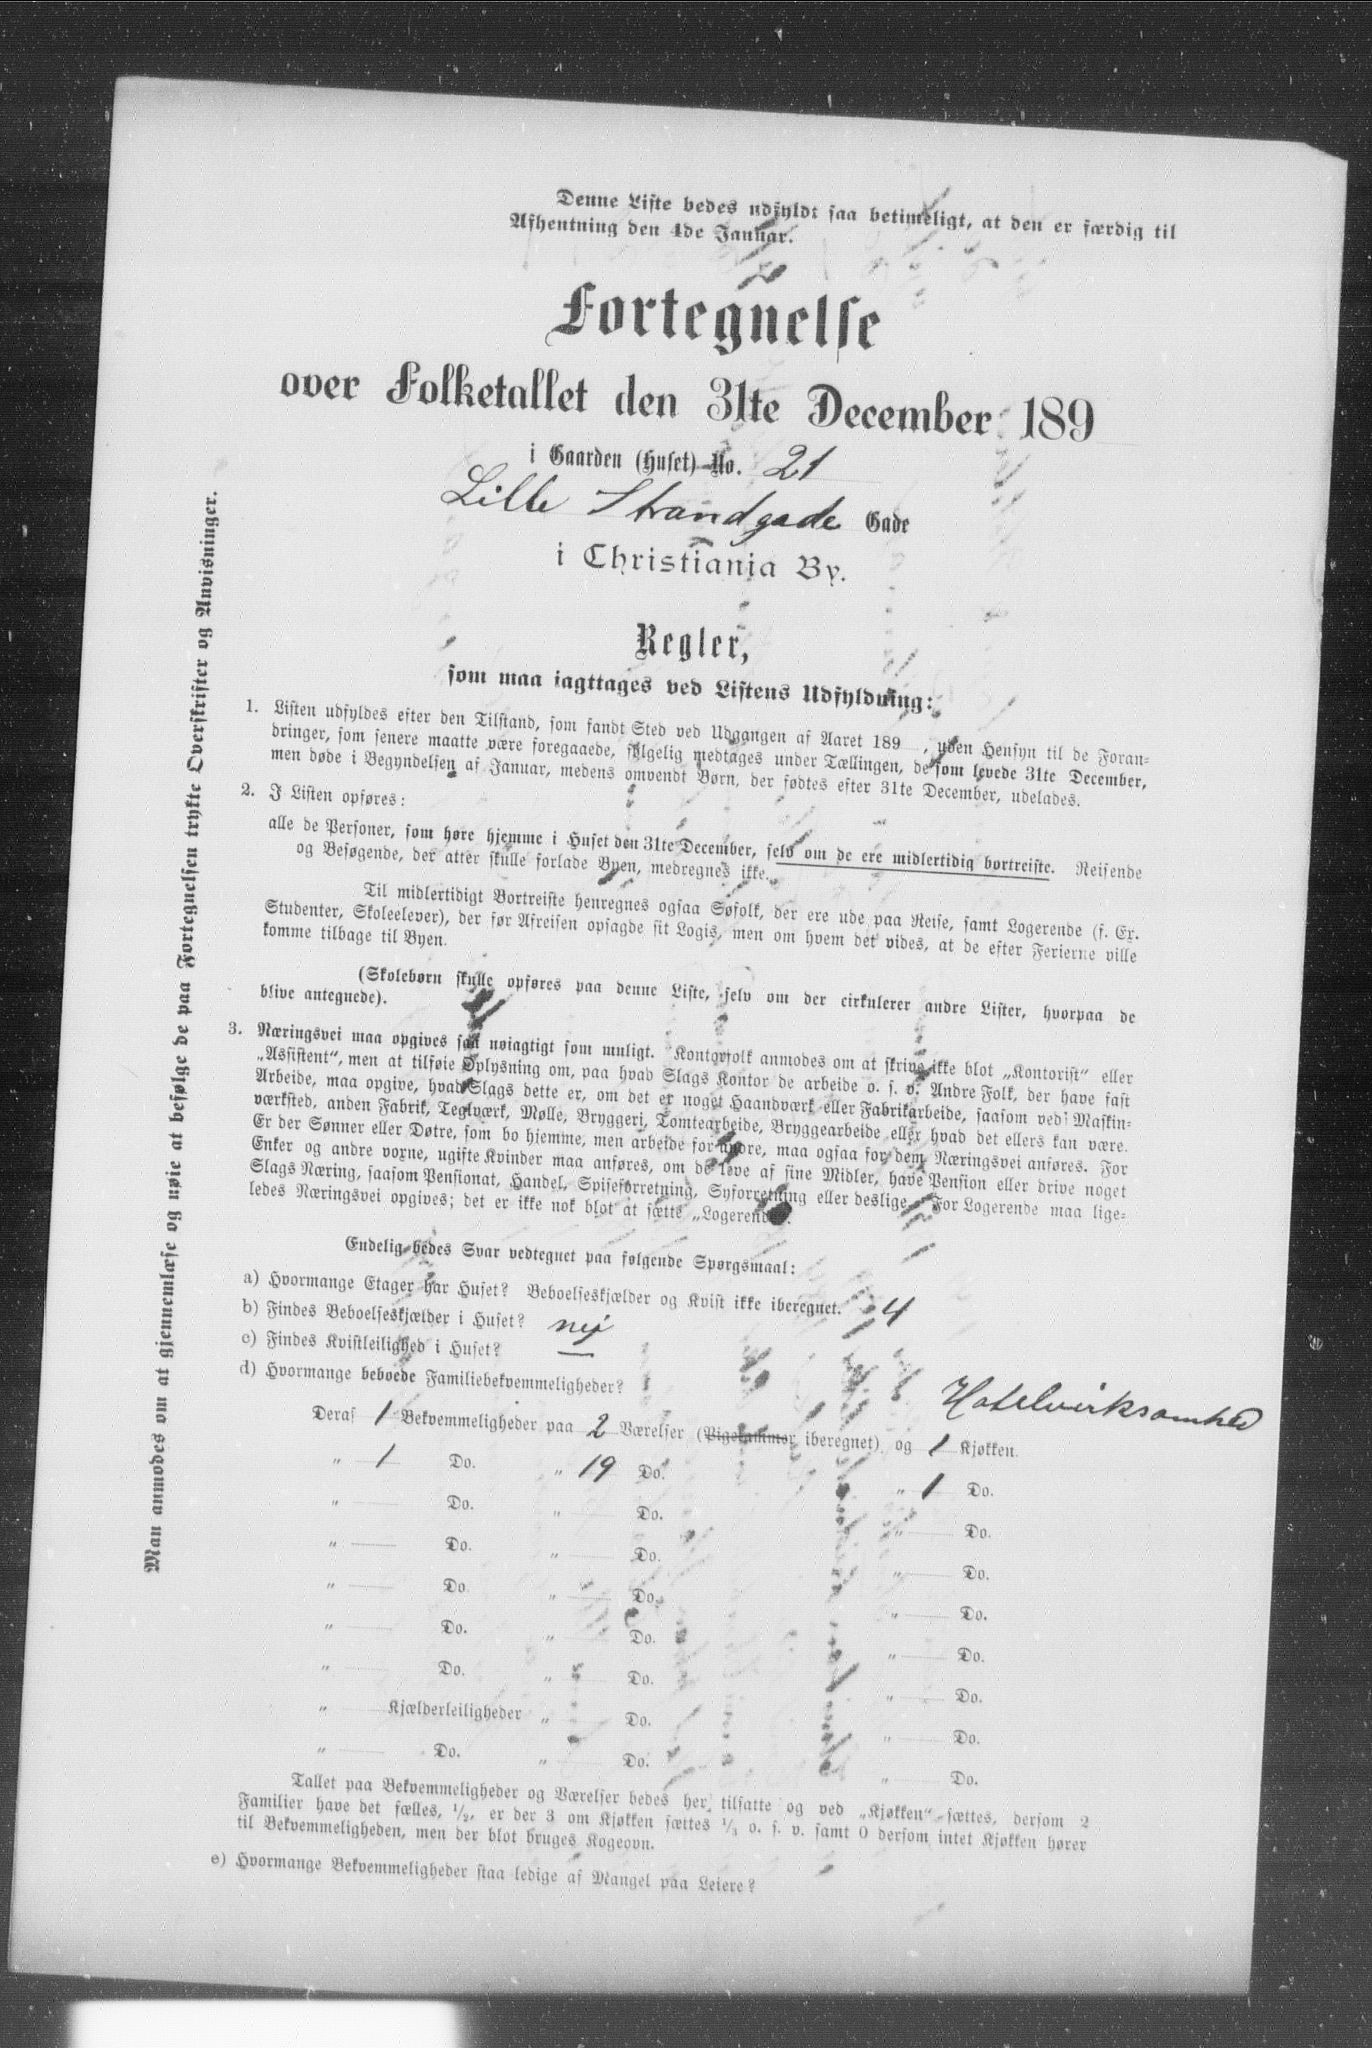 Denne Liste bedes udfyldt saa betimeligt, at den er færdig til
Afhentning den 4de Januar.
Fortegnelse
over Folketallet den 31te December 189
i Gaarden (Huset) No. 21
Lille Strandgade Gade
i Christiania By.
Regler,
som maa iagttages ved Listens Udfyldning:
1. Listen udfyldes efter den Tilstand, som fandt Sted ved Udgangen af Aaret 189 , uden Hensyn til de Foran-
dringer, som senere maatte være foregaaede, følgelig medtages under Tællingen, de som levede 31te December,
men døde i Begyndelsen af Januar, medens omvendt Børn, der fødtes efter 31te December, udelades.
2. I Listen opføres:
alle de Personer, som høre hjemme i Huset den 31te December, selv om de ere midlertidig bortreiste. Reisende
og Besøgende, der atter skulle forlade Byen, medregnes ikke.
Til midlertidigt Bortreiste henregnes ogsaa Søfolk, der ere ude paa Reise, samt Logerende (f. Ex.
Studenter, Skoleelever), der før Afreisen opsagde sit Logis, men om hvem det vides, at de efter Ferierne ville
komme tilbage til Byen.
(Skolebørn skulle opføres paa denne Liste, selv om der cirkulerer andre Lister, hvorpaa de
blive antegnede).
3. Næringsvei maa opgives saa nøiagtigt som muligt. Kontorfolk anmodes om at skrive ikke blot „Kontorist" eller
„Assistent", men at tilføie Oplysning om, paa hvad Slags Kontor de arbeide o. s. v. Andre Folk, der have fast
Arbeide, maa opgive, hvad Slags dette er, om det er noget Haandværk eller Fabrikarbeide, saasom ved Maskin-
værksted, anden Fabrik, Teglværk, Mølle, Bryggeri, Tomtearbeide, Bryggearbeide eller hvad det ellers kan være.
Er der Sønner eller Døtre, som bo hjemme, men arbeide for andre, maa ogsaa for dem Næringsvei anføres. For
Enker og andre voxne, ugifte Kvinder maa anføres, om de leve af sine Midler, have Pension eller drive noget
Slags Næring, saasom Pensionat, Handel, Spiseforretning, Syforretning eller deslige. For Logerende maa lige-
ledes Næringsvei opgives; det er ikke nok blot at sætte „Logerende".
Endelig bedes Svar vedtegnet paa følgende Spørgsmaal:
a) Hvormange Etager har Huset? Beboelseskjælder og Kvist ikke iberegnet. 4
b) Findes Beboelseskjælder i Huset? nej
c) Findes Kvistleilighed i Huset? —
d) Hvormange beboede Familiebekvemmeligheder?
Hotelvirksomhed
Deraf 1 Bekvemmeligheder paa 2 Værelser (Pigekammer iberegnet) og 1 Kjøkken.
„ 1 Do. „ 19 Do. „ 1 Do.
„ Do. „ Do. „ Do.
„ Do. „ Do. „ Do.
„ Do. „ Do. „ Do.
„ Do. „ Do. „ Do.
„ Do. „ Do. „ Do.
„ Kjælderleiligheder „ Do. „ Do.
„ Do. „ Do. „ Do.
Tallet paa Bekvemmeligheder og Værelser bedes her tilsatte og ved „Kjøkken" sættes, dersom 2
Familier have det fælles, 1/2, er der 3 om Kjøkken sættes 1/3 o. s. v. samt 0 dersom intet Kjøkken hører
til Bekvemmeligheden, men der blot bruges Kogeovn.
e) Hvormange Bekvemmeligheder staa ledige af Mangel paa Leiere?
Man anmodes om at gjennemlæse og nøie at befølge de paa Fortegnelsen trykte Overskrifter og Anvisninger.